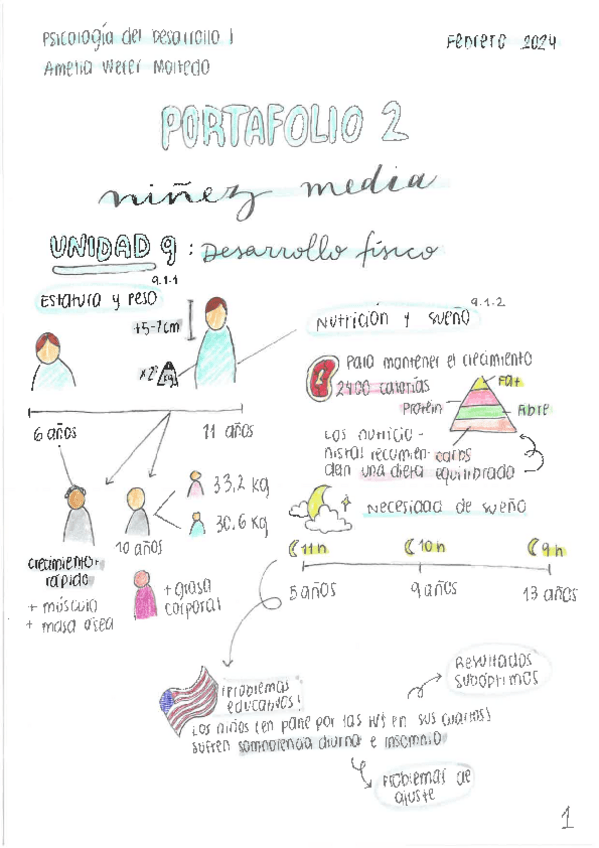 Psicología del Desarrollo I
Febrero 2024
Amelia Werer Moltedo
PORTAFOLIO 2
niñez media
UNIDAD 9: Desarrollo físico
9.1.1
Estatura y peso
+5-7cm
x2
kg
6 años
11 años
10 años
33,2 kg
30.6 kg
crecimiento
rápido
+ músculo
+ masa ósea
+ grasa
corporal
9.1.2
Nutrición y sueño
Para mantener el crecimiento
2400 calorías
Fat
Protein
Fibre
carbs
Los nutricio-
nistas recomien-
dan una dieta equilibrada
Necesidad de sueño
11 h
10 h
9 h
5 años
9 años
13 años
¡Problemas
educativos!
Los niños (en parte por las TVs en sus cuartos)
sufren somnolencia diurna e insomnio
Resultados
subóptimos
Problemas de
ajuste
1